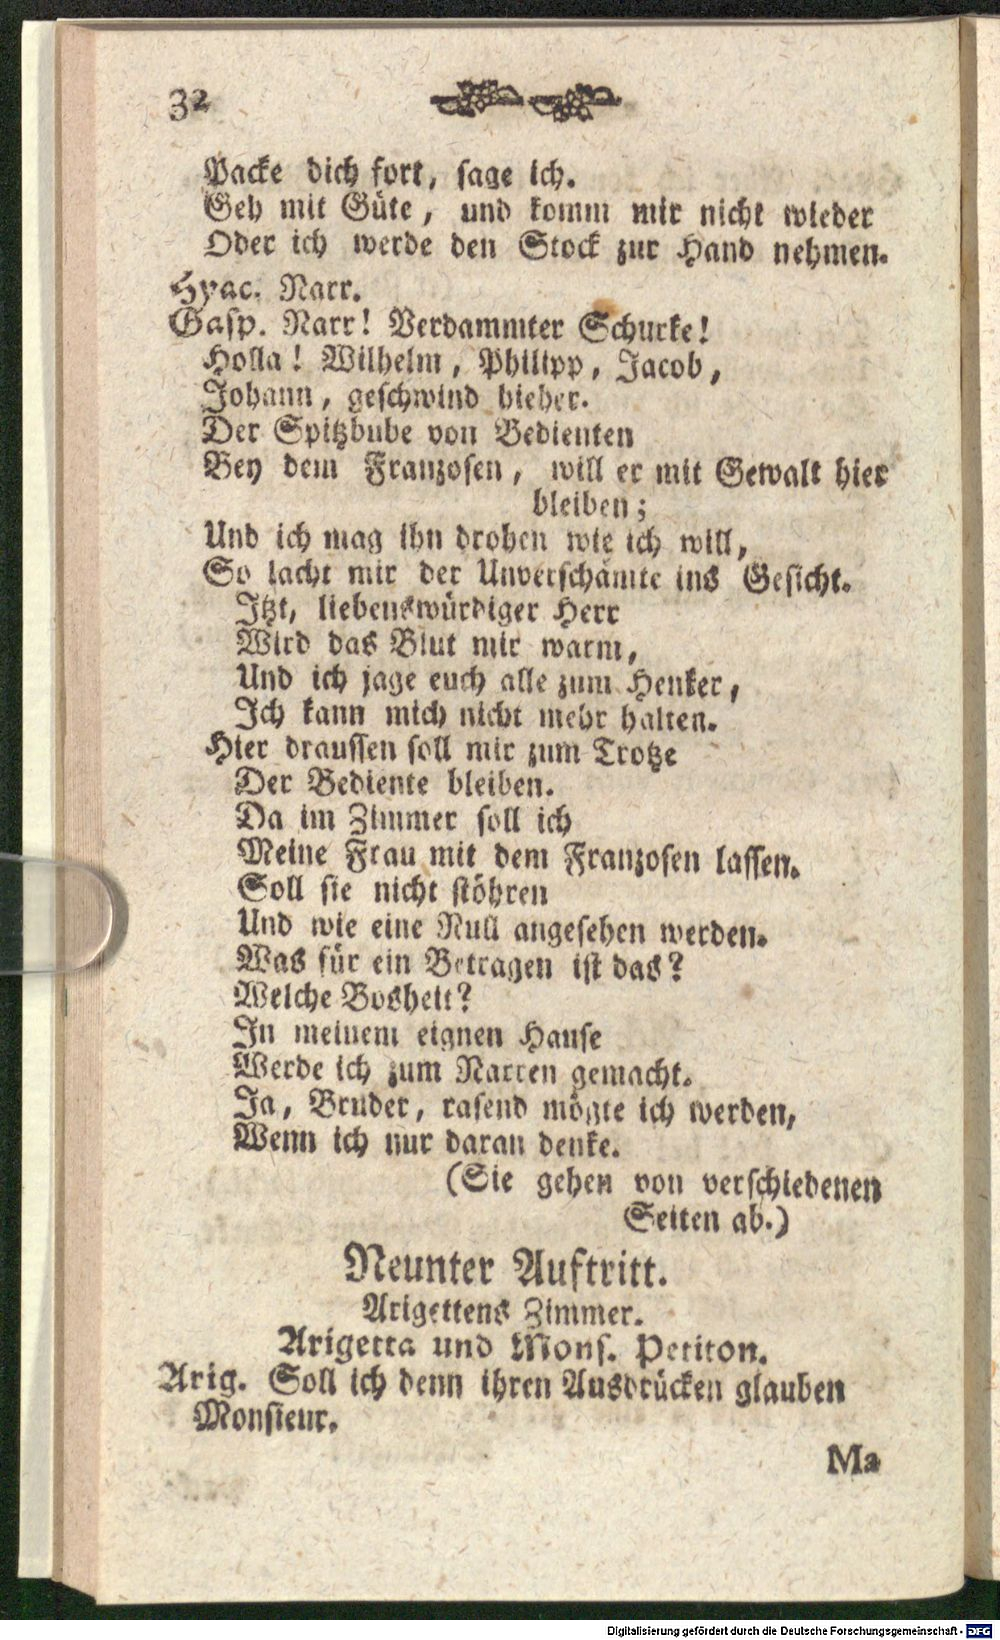 32
Packe dich fort, sage ich.
Geh mit Güte, und komm mir nicht wieder
Oder ich werde den Stock zur Hand nehmen.
Hyac. Narr.
Gasp. Narr! Verdammter Schurke!
Holla! Wilhelm, Philipp, Jacob,
Johann, geschwind hieher.
Der Spitzbube von Bedienten
Bey dem Franzosen, will er mit Gewalt hier
bleiben;
Und ich mag ihn drohen wie ich will,
So lacht mir der Unverschämte ins Gesicht.
Itzt, liebenswürdiger Herr
Wird das Blut mir warm,
Und ich jage euch alle zum Henker,
Ich kann mich nicht mehr halten.
Hier draussen soll mir zum Trotze
Der Bediente bleiben.
Da im Zimmer soll ich
Meine Frau mit dem Franzosen lassen.
Soll sie nicht stöhren
Und wie eine Null angesehen werden.
Was für ein Betragen ist das?
Welche Bosheit?
In meinem eignen Hause
Werde ich zum Narren gemacht.
Ja, Bruder, rasend mögte ich werden,
Wenn ich nur daran denke.
(Sie gehen von verschiedenen
Seiten ab.)
Neunter Auftritt.
Arigettens Zimmer.
Arigetta und Mons. Petiton.
Arig. Soll ich denn ihren Ausdrücken glauben
Monsieur.
Ma
Digitalisierung gefördert durch die Deutsche Forschungsgemeinschaft - DFG